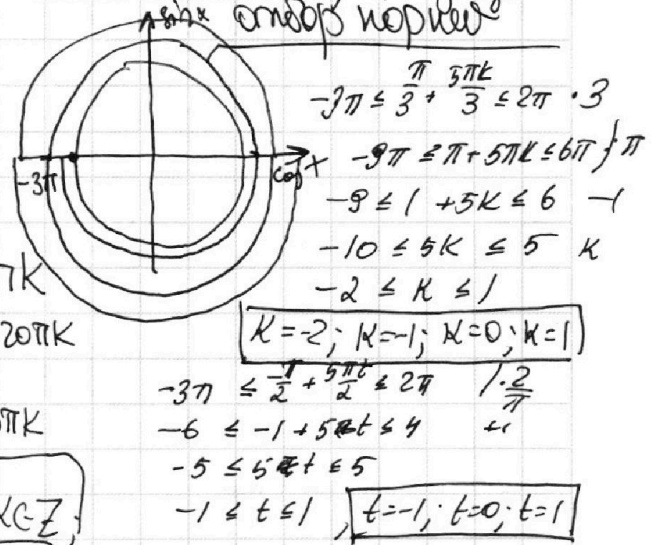 sin x отбор корней
-3π ≤ π/3 + 5πk/3 ≤ 2π · 3
-9π ≤ π + 5πk ≤ 6π } ÷ π
-3π cos x
-9 ≤ 1 + 5k ≤ 6 -1
-10 ≤ 5k ≤ 5 k
πk -2 ≤ k ≤ 1
20πk k=-2; k=-1; k=0; k=1
-3π ≤ -π/2 + 5πt/2 ≤ 2π /· 2/π
πk -6 ≤ -1 + 5t ≤ 4
-5 ≤ 5t ≤ 5
k∈Z; -1 ≤ t ≤ 1, t=-1; t=0; t=1